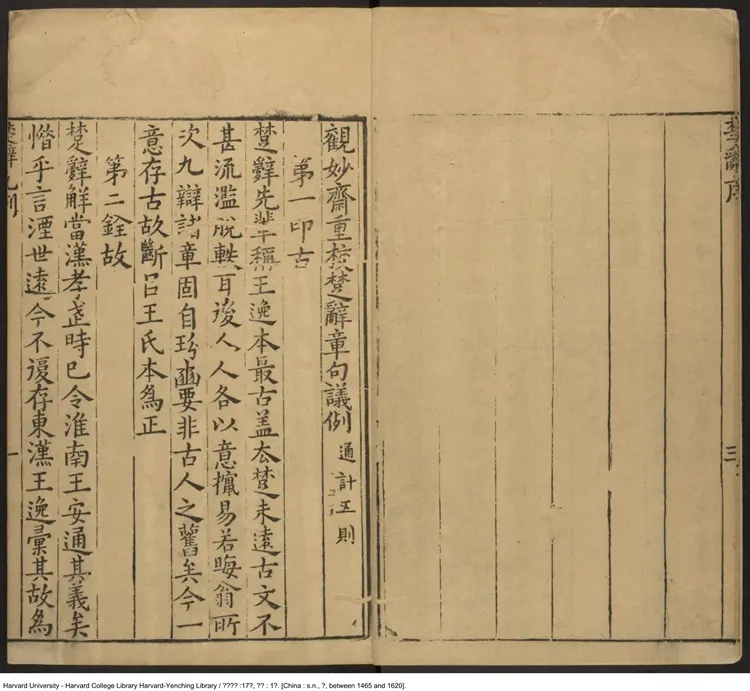 楚辭序
三
觀妙齋重校楚辭章句議例 通計五則
第一印古
楚辭先輩稱王逸本最古盖厺楚未遠古文不
甚流濫脫軼耳後人人各以意攛易若晦翁所
次九辯諸章固自玢豳要非古人之舊矣今一
意存古故斷㠯王氏本為正
第二銓故
楚辭解當漢孝武時已令淮南王安通其義矣
惜乎言湮世遠今不復存東漢王逸彙其故為
楚辭凡例
一
Harvard University - Harvard College Library Harvard-Yenching Library / ???? :17?, ?? : 1?. [China : s.n., ?, between 1465 and 1620].